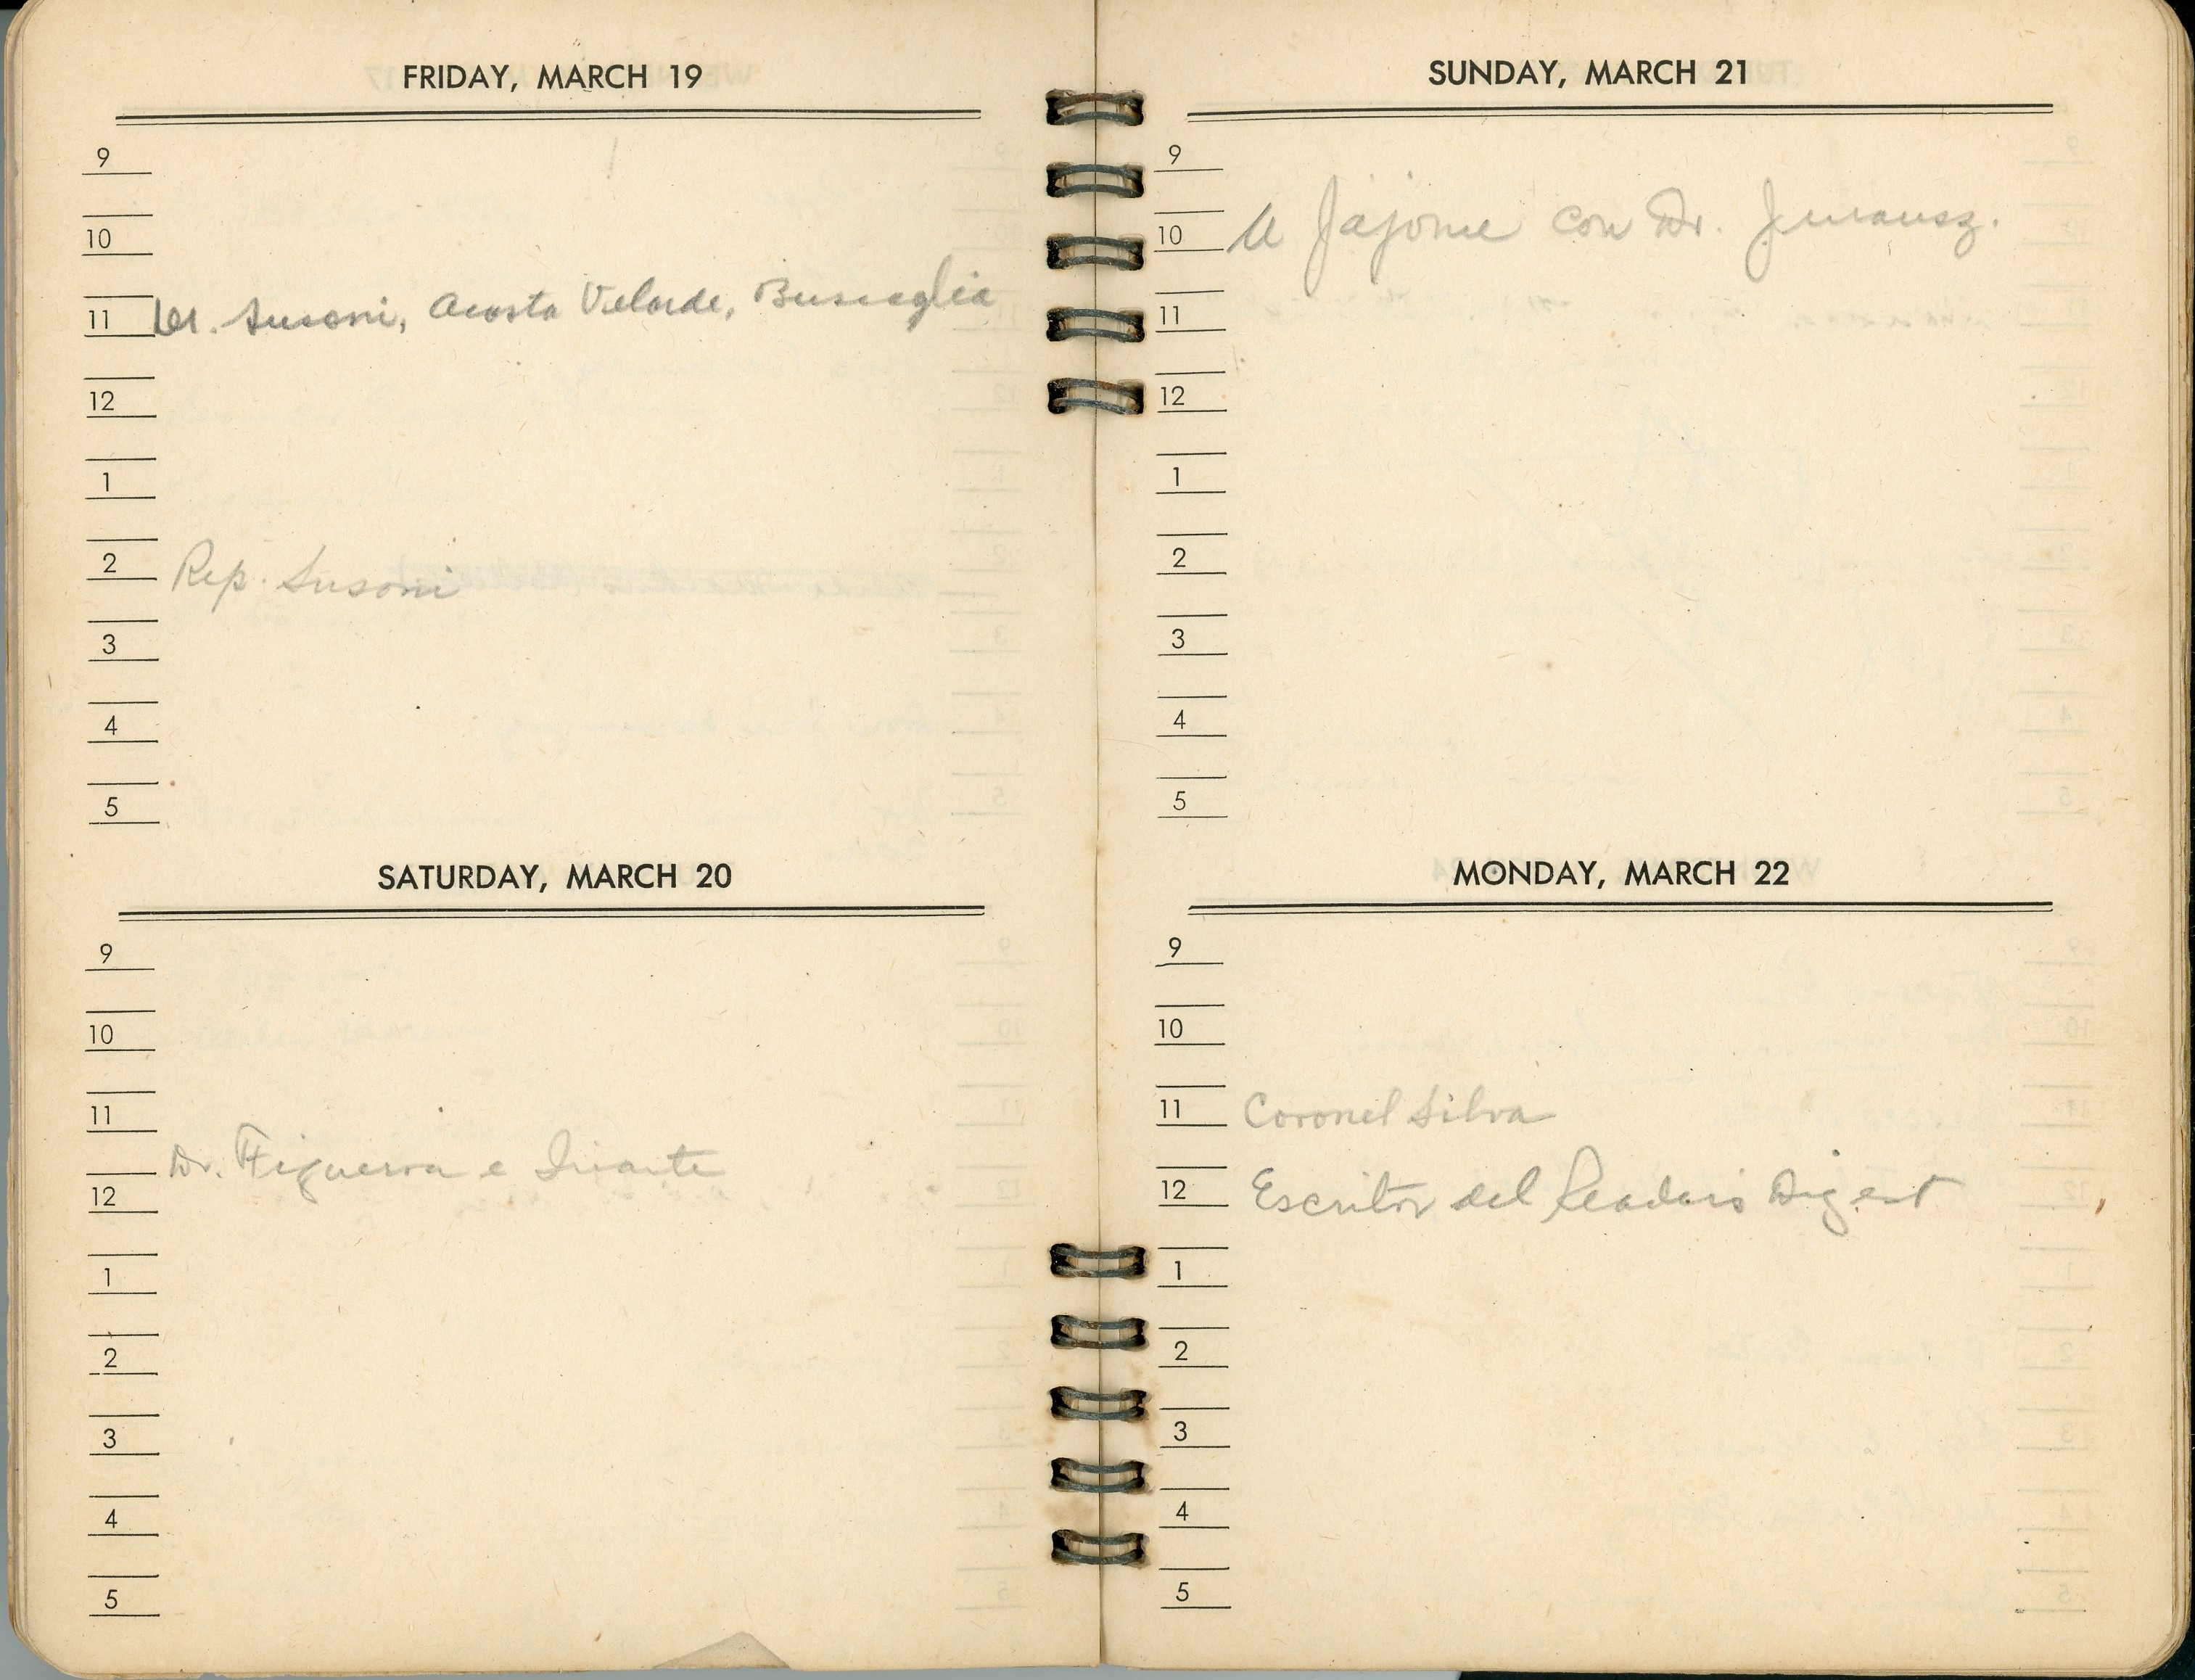 FRIDAY, MARCH 19
9
10
11 Dr. Susoni, Acosta Velarde, Buscaglia
12
1
2 Rep. Susoni
3
4
5
SATURDAY, MARCH 20
9
10
11
Dr. Figueroa e Iriarte
12
1
2
3
4
5
SUNDAY, MARCH 21
9
10 A Jájome con Dr.
11
12
1
2
3
4
5
MONDAY, MARCH 22
9
10
11 Coronel Silva
12 Escritor del Readers Digest
1
2
3
4
5